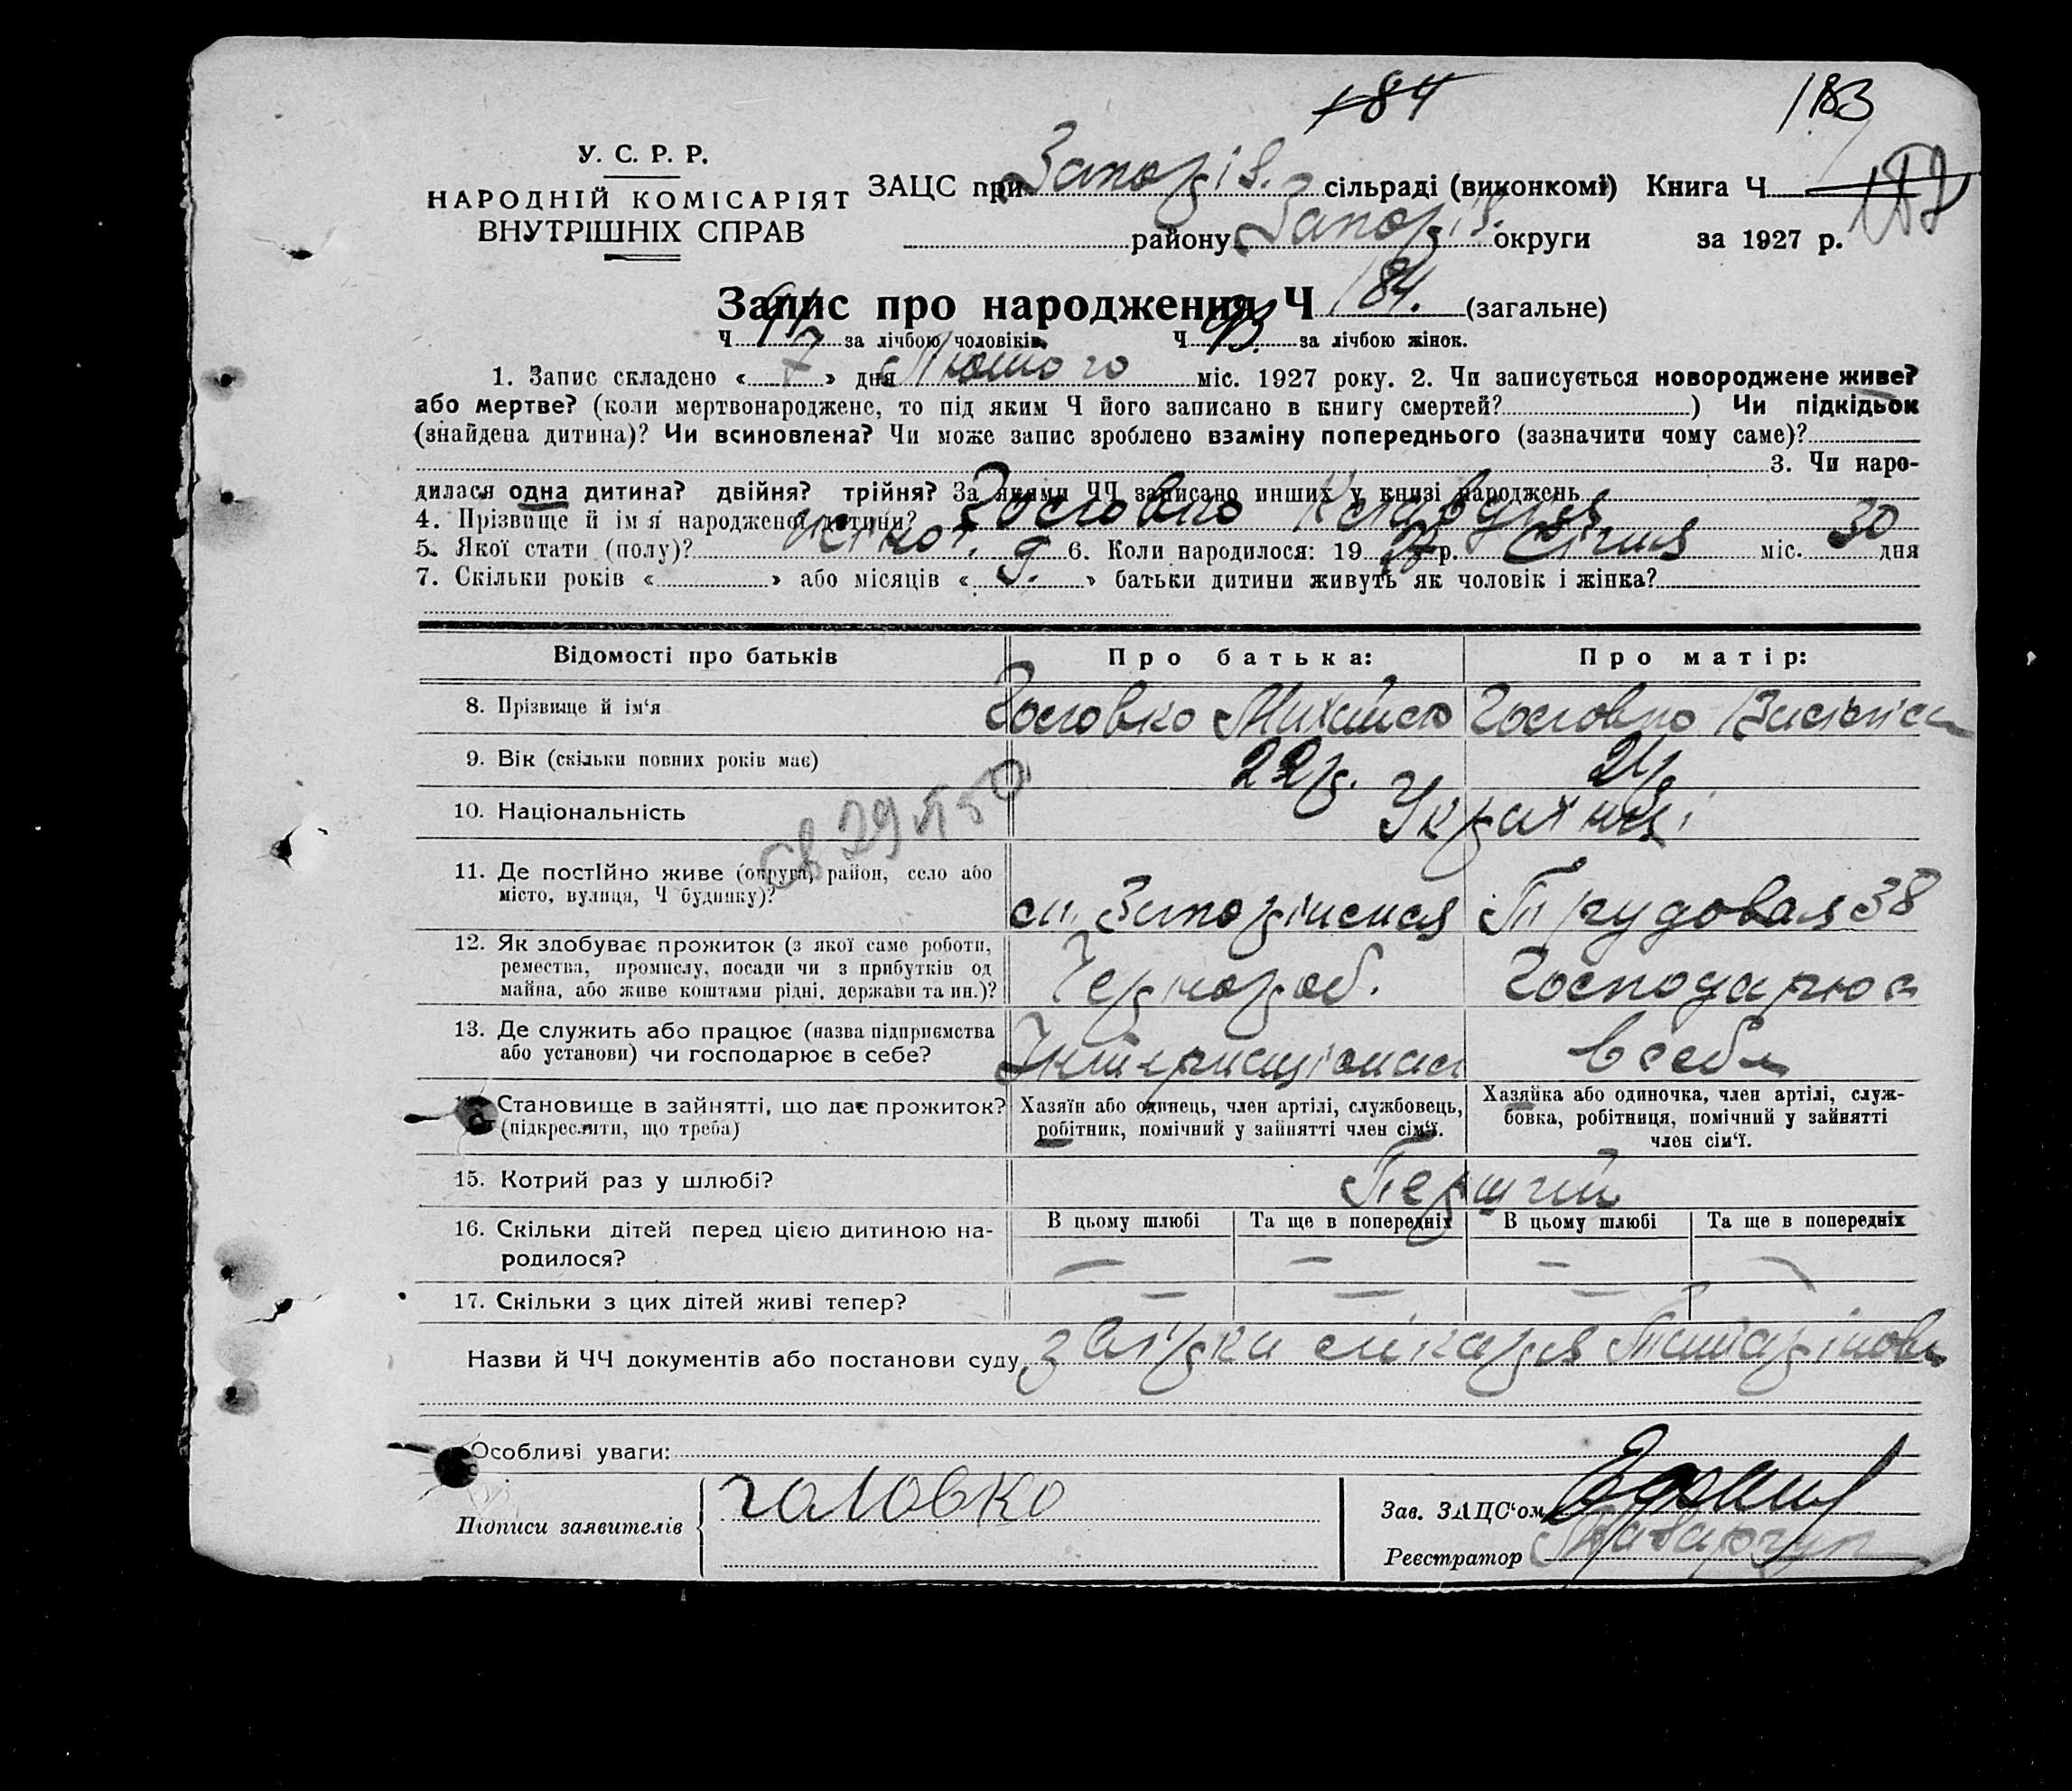 184
183
У. С. Р. Р.
НАРОДНІЙ КОМІСАРІЯТ
ВНУТРІШНІХ СПРАВ
ЗАЦС при Запоріз. сільраді (виконкомі) Книга Ч
району Запоріз. округи за 1927 р.
Запис про народження Ч 184. (загальне)
Ч 91 за лічбою чоловіків. Ч 93. за лічбою жінок.
1. Запис складено «7» дня Лютого міс. 1927 року. 2. Чи записується новороджене живе?
або мертве? (коли мертвонароджене, то під яким Ч його записано в книгу смертей?) Чи підкідьок
(знайдена дитина)? Чи всиновлена? Чи може запис зроблено взаміну попереднього (зазначити чому саме)?
3. Чи наро-
дилася одна дитина? двійня? трійня? За якими ЧЧ записано инших у книзі народжень
4. Прізвище й ім'я народженої дитини? Головко Клавдія
5. Якої стати (полу)? жіноч. 6. Коли народилося: 1927 р. Січня міс. 30 дня
7. Скільки років «» або місяців «9.» батьки дитини живуть як чоловік і жінка?
Відомості про батьків Про батька: Про матір:
8. Прізвище й ім'я Головко Михайло Головко
9. Вік (скільки повних років має) 22р. 21р
10. Національність Українці
11. Де постійно живе (округа, район, село або
місто, вулиця, Ч будинку)? Трудовая 38
12. Як здобуває прожиток (з якої саме роботи,
ремества, промислу, посади чи з прибутків од
майна, або живе коштами рідні, держави та ин.)? Чорнороб. Господарює
13. Де служить або працює (назва підприємства
або установи) чи господарює в себе? Інтернаціонал в себе
Становище в зайнятті, що дає прожиток?
(підкреслити, що треба)
Хазяїн або одинець, член артілі, службовець,
робітник, помічний у зайнятті член сім'ї.
Хазяйка або одиночка, член артілі, служ-
бовка, робітниця, помічний у зайнятті
член сім'ї.
15. Котрий раз у шлюбі? Перший
16. Скільки дітей перед цією дитиною на-
родилося?
В цьому шлюбі Та ще в попередніх В цьому шлюбі Та ще в попередніх
— — — —
17. Скільки з цих дітей живі тепер? — — —
Назви й ЧЧ документів або постанови суду довідка лікаря
Особливі уваги:
Підписи заявителів Головко
Зав. ЗАЦС'ом
Реєстратор